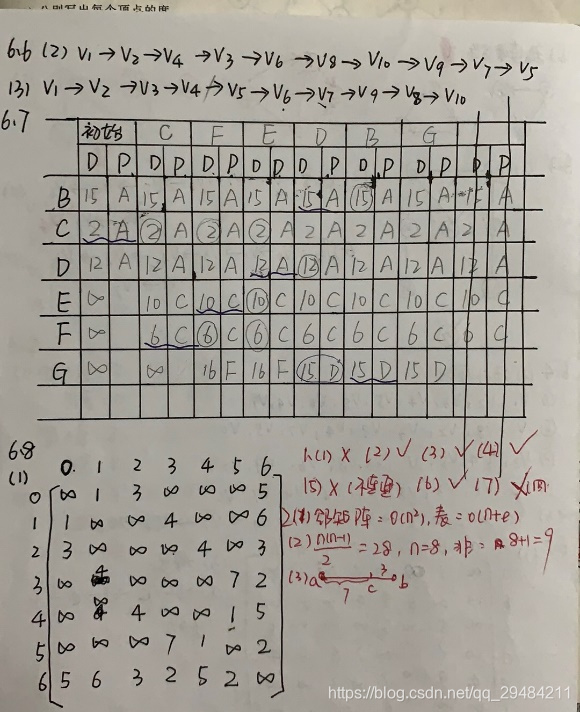 别写出每个顶点的度
6.6 (2) V1→V2→V4→V3→V6→V8→V10→V9→V7→V5
(3) V1→V2→V3→V4→V5→V6→V7→V9→V8→V10
6.7
初始 C F E D B G
D P D P D P D P D P D P D P D P
B 15 A 15 A 15 A 15 A 15 A 15 A 15 A 15 A
C 2 A 2 A 2 A 2 A 2 A 2 A 2 A 2 A
D 12 A 12 A 12 A 12 A 12 A 12 A 12 A 12 A
E ∞ 10 C 10 C 10 C 10 C 10 C 10 C 10 C
F ∞ 6 C 6 C 6 C 6 C 6 C 6 C 6 C
G ∞ ∞ 16 F 16 F 15 D 15 D 15 D
6.8
(1)
0 1 2 3 4 5 6
0 ∞ 1 3 ∞ ∞ ∞ 5
1 1 ∞ ∞ 4 ∞ ∞ 6
2 3 ∞ ∞ ∞ 4 ∞ 3
3 ∞ 4 ∞ ∞ ∞ 7 2
4 ∞ ∞ 4 ∞ ∞ 1 5
5 ∞ ∞ ∞ 7 1 ∞ 2
6 5 6 3 2 5 2 ∞
1.(1) × (2) ✓ (3) ✓ (4) ✓
(5) × (不连通) (6) ✓ (7) ×
2(1) 邻矩阵=O(n²), 表=O(n+e)
(2) n(n-1)/2 = 28, n=8, 非= 8+1=9
(3) a 7 c 3 b
https://blog.csdn.net/qq_29484211